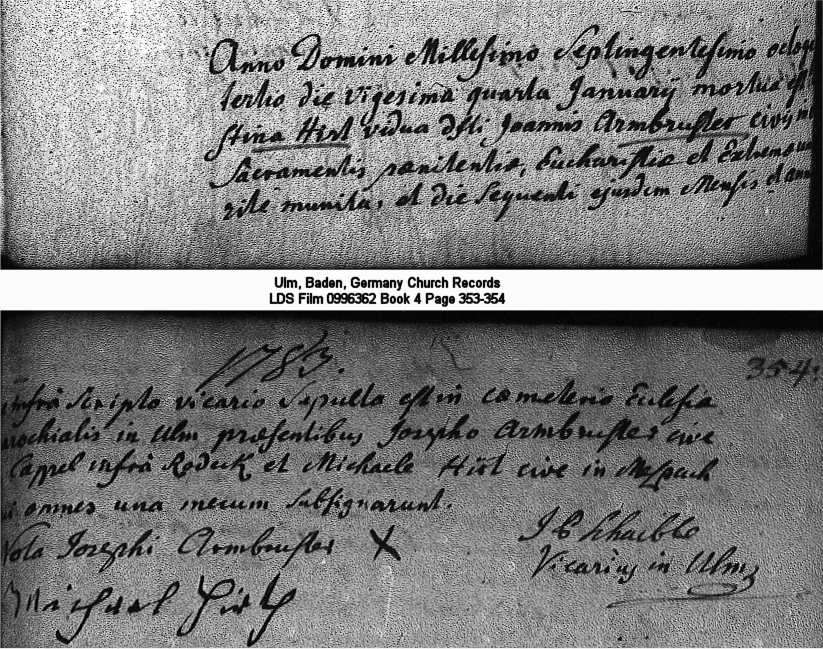 Anno Domini Millesimo Septingentesimo octoge
tertio die vigesima quarta Januarij mortua est
stina Hirt vidua dfti Joannis Armbruster civis in
Sacramentis pœnitentiæ, Eucharistiæ et Extremæ un
rite munita, et die Sequenti ejusdem Mensis et anni
Ulm, Baden, Germany Church Records
LDS Film 0996362 Book 4 Page 353-354
1783.
354.
infrà Scripto vicario Sepulta est in cœmeterio Eclesiæ
rochialis in Ulm præsentibus Josepho Armbruster cive
Cappel infrà Rodeck et Michaele Hirt cive in
omnes una mecum Subsignarunt.
Nota Josephi Armbruster X
J B Schaible
Vicarius in Ulm
Michael Hirt